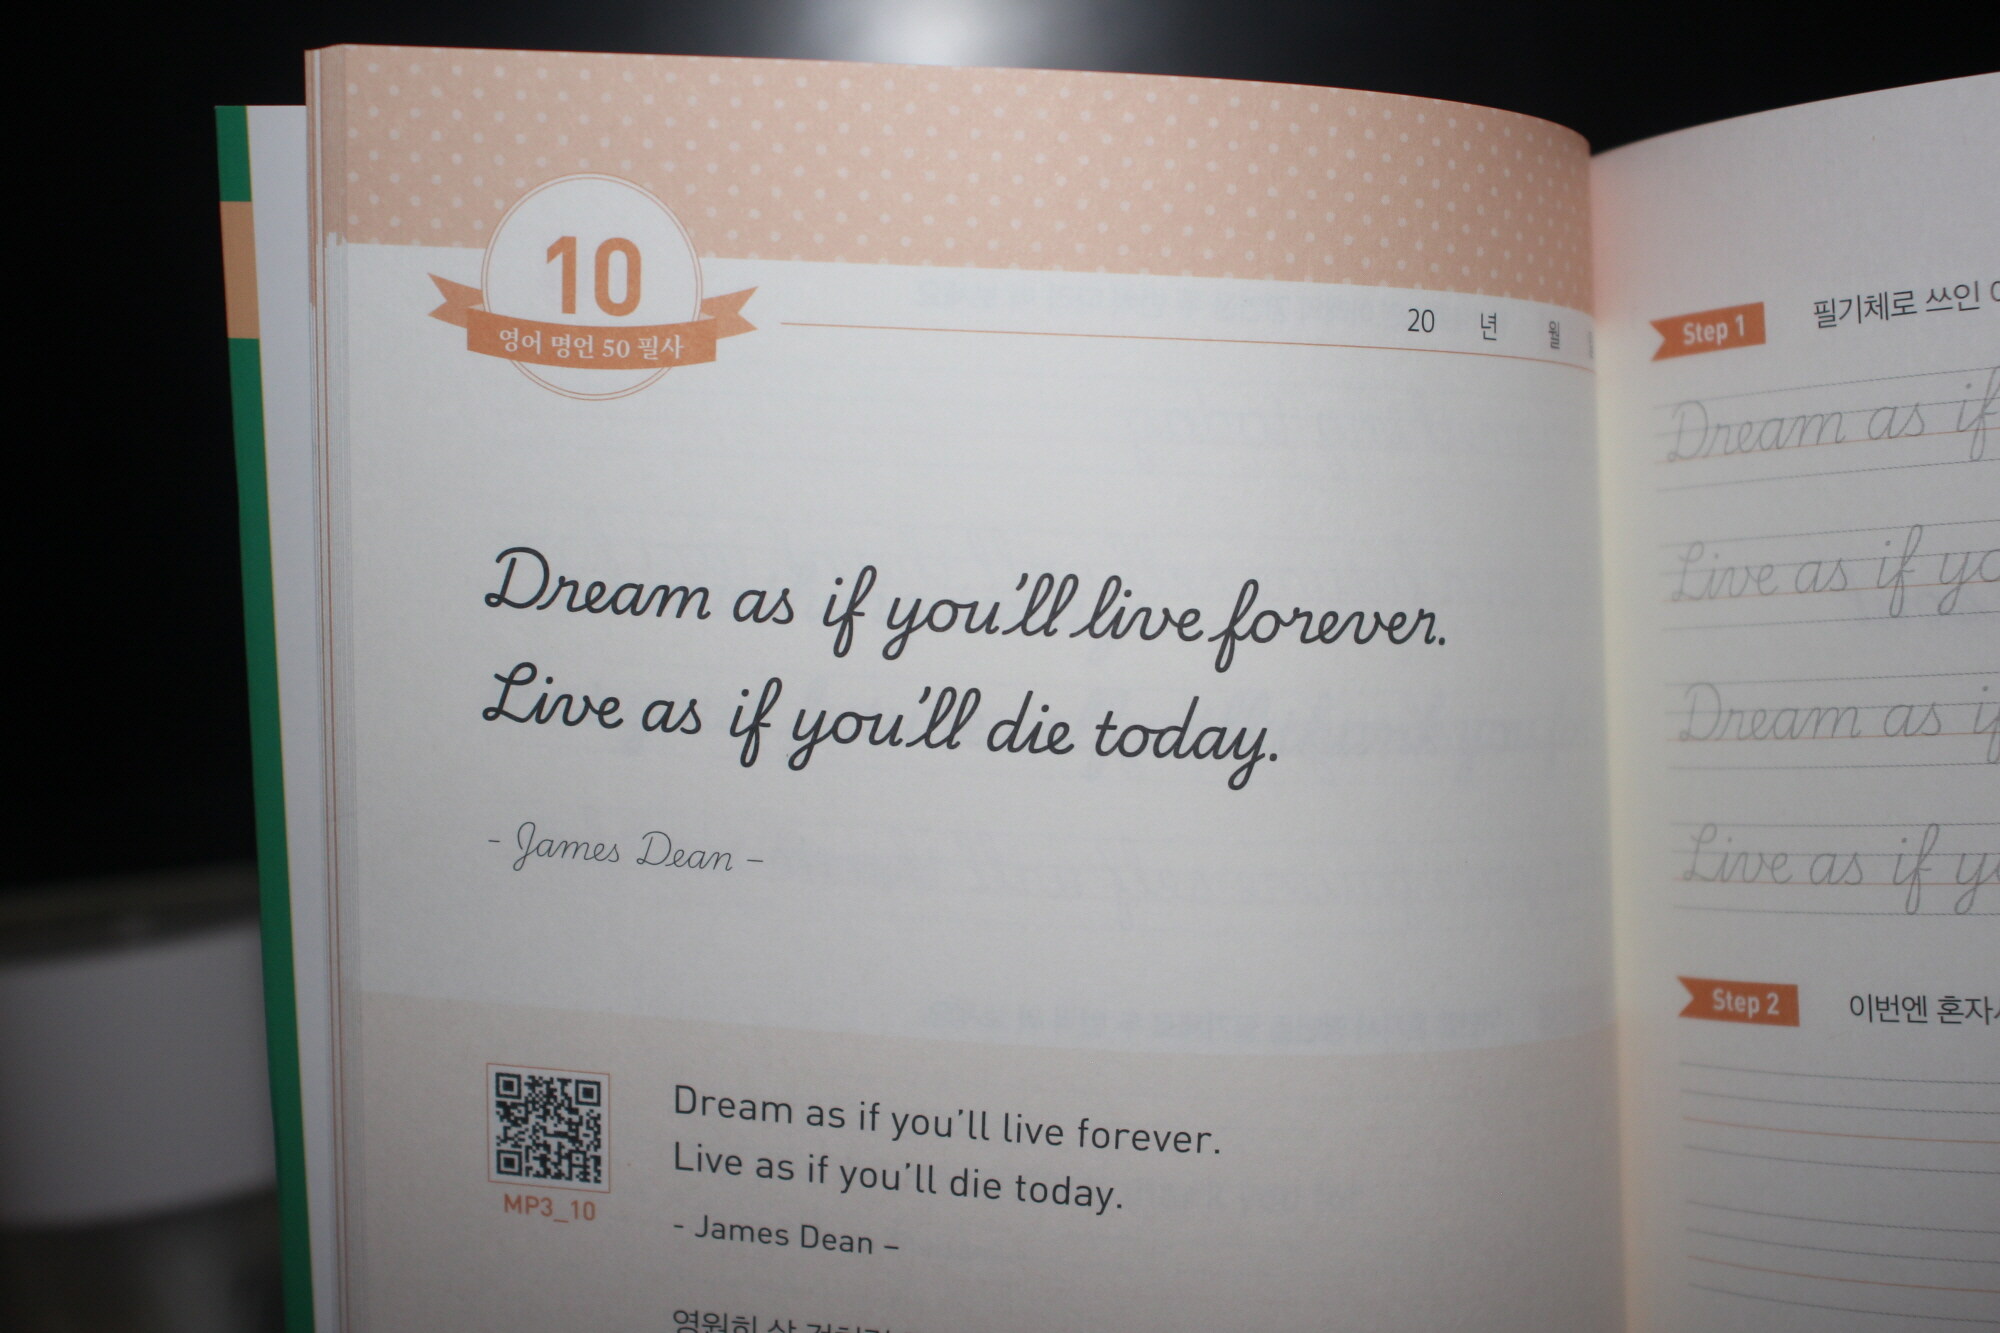 10
영어 명언 50 필사
20 년 월
Dream as if you'll live forever.
Live as if you'll die today.
- James Dean -
MP3_10
Dream as if you'll live forever.
Live as if you'll die today.
- James Dean -
영원히 살 것처럼
Step 1 필기체로 쓰인
Dream as if
Live as if
Dream as if
Live as if
Step 2 이번엔